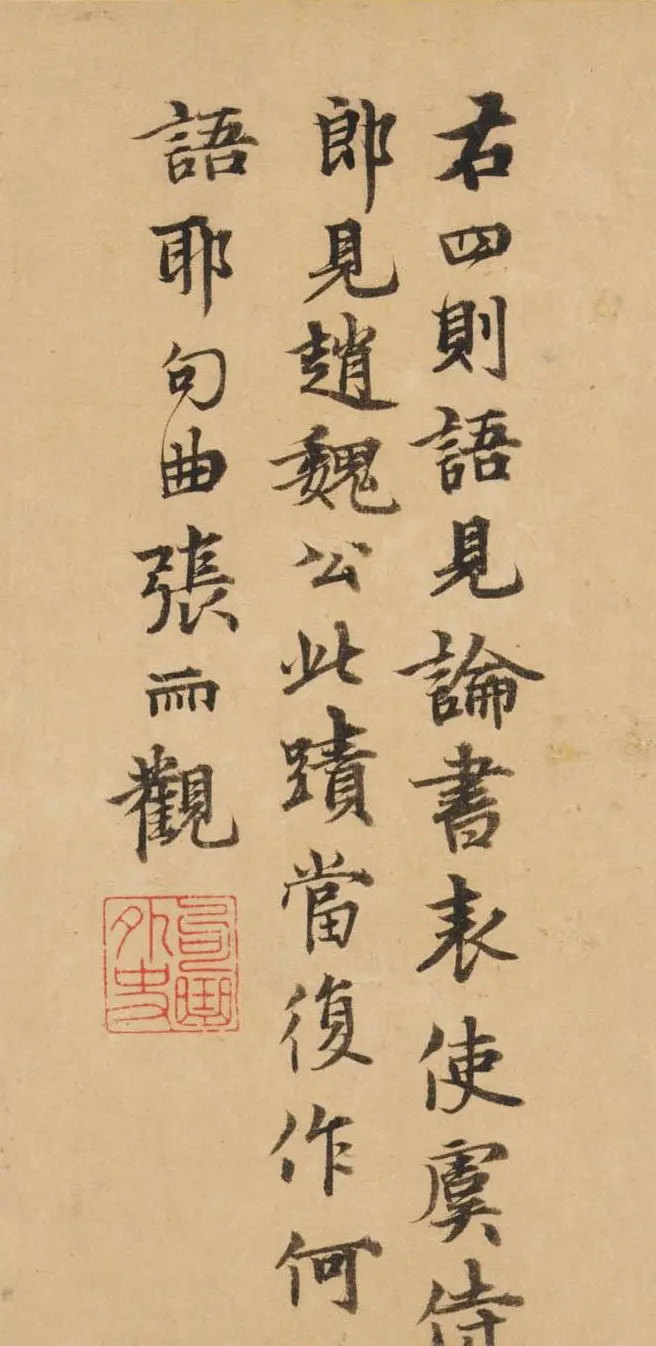 右四則語見論書表使虞侍
郎見趙魏公此蹟當復作何
語耶句曲張雨觀
句曲外史